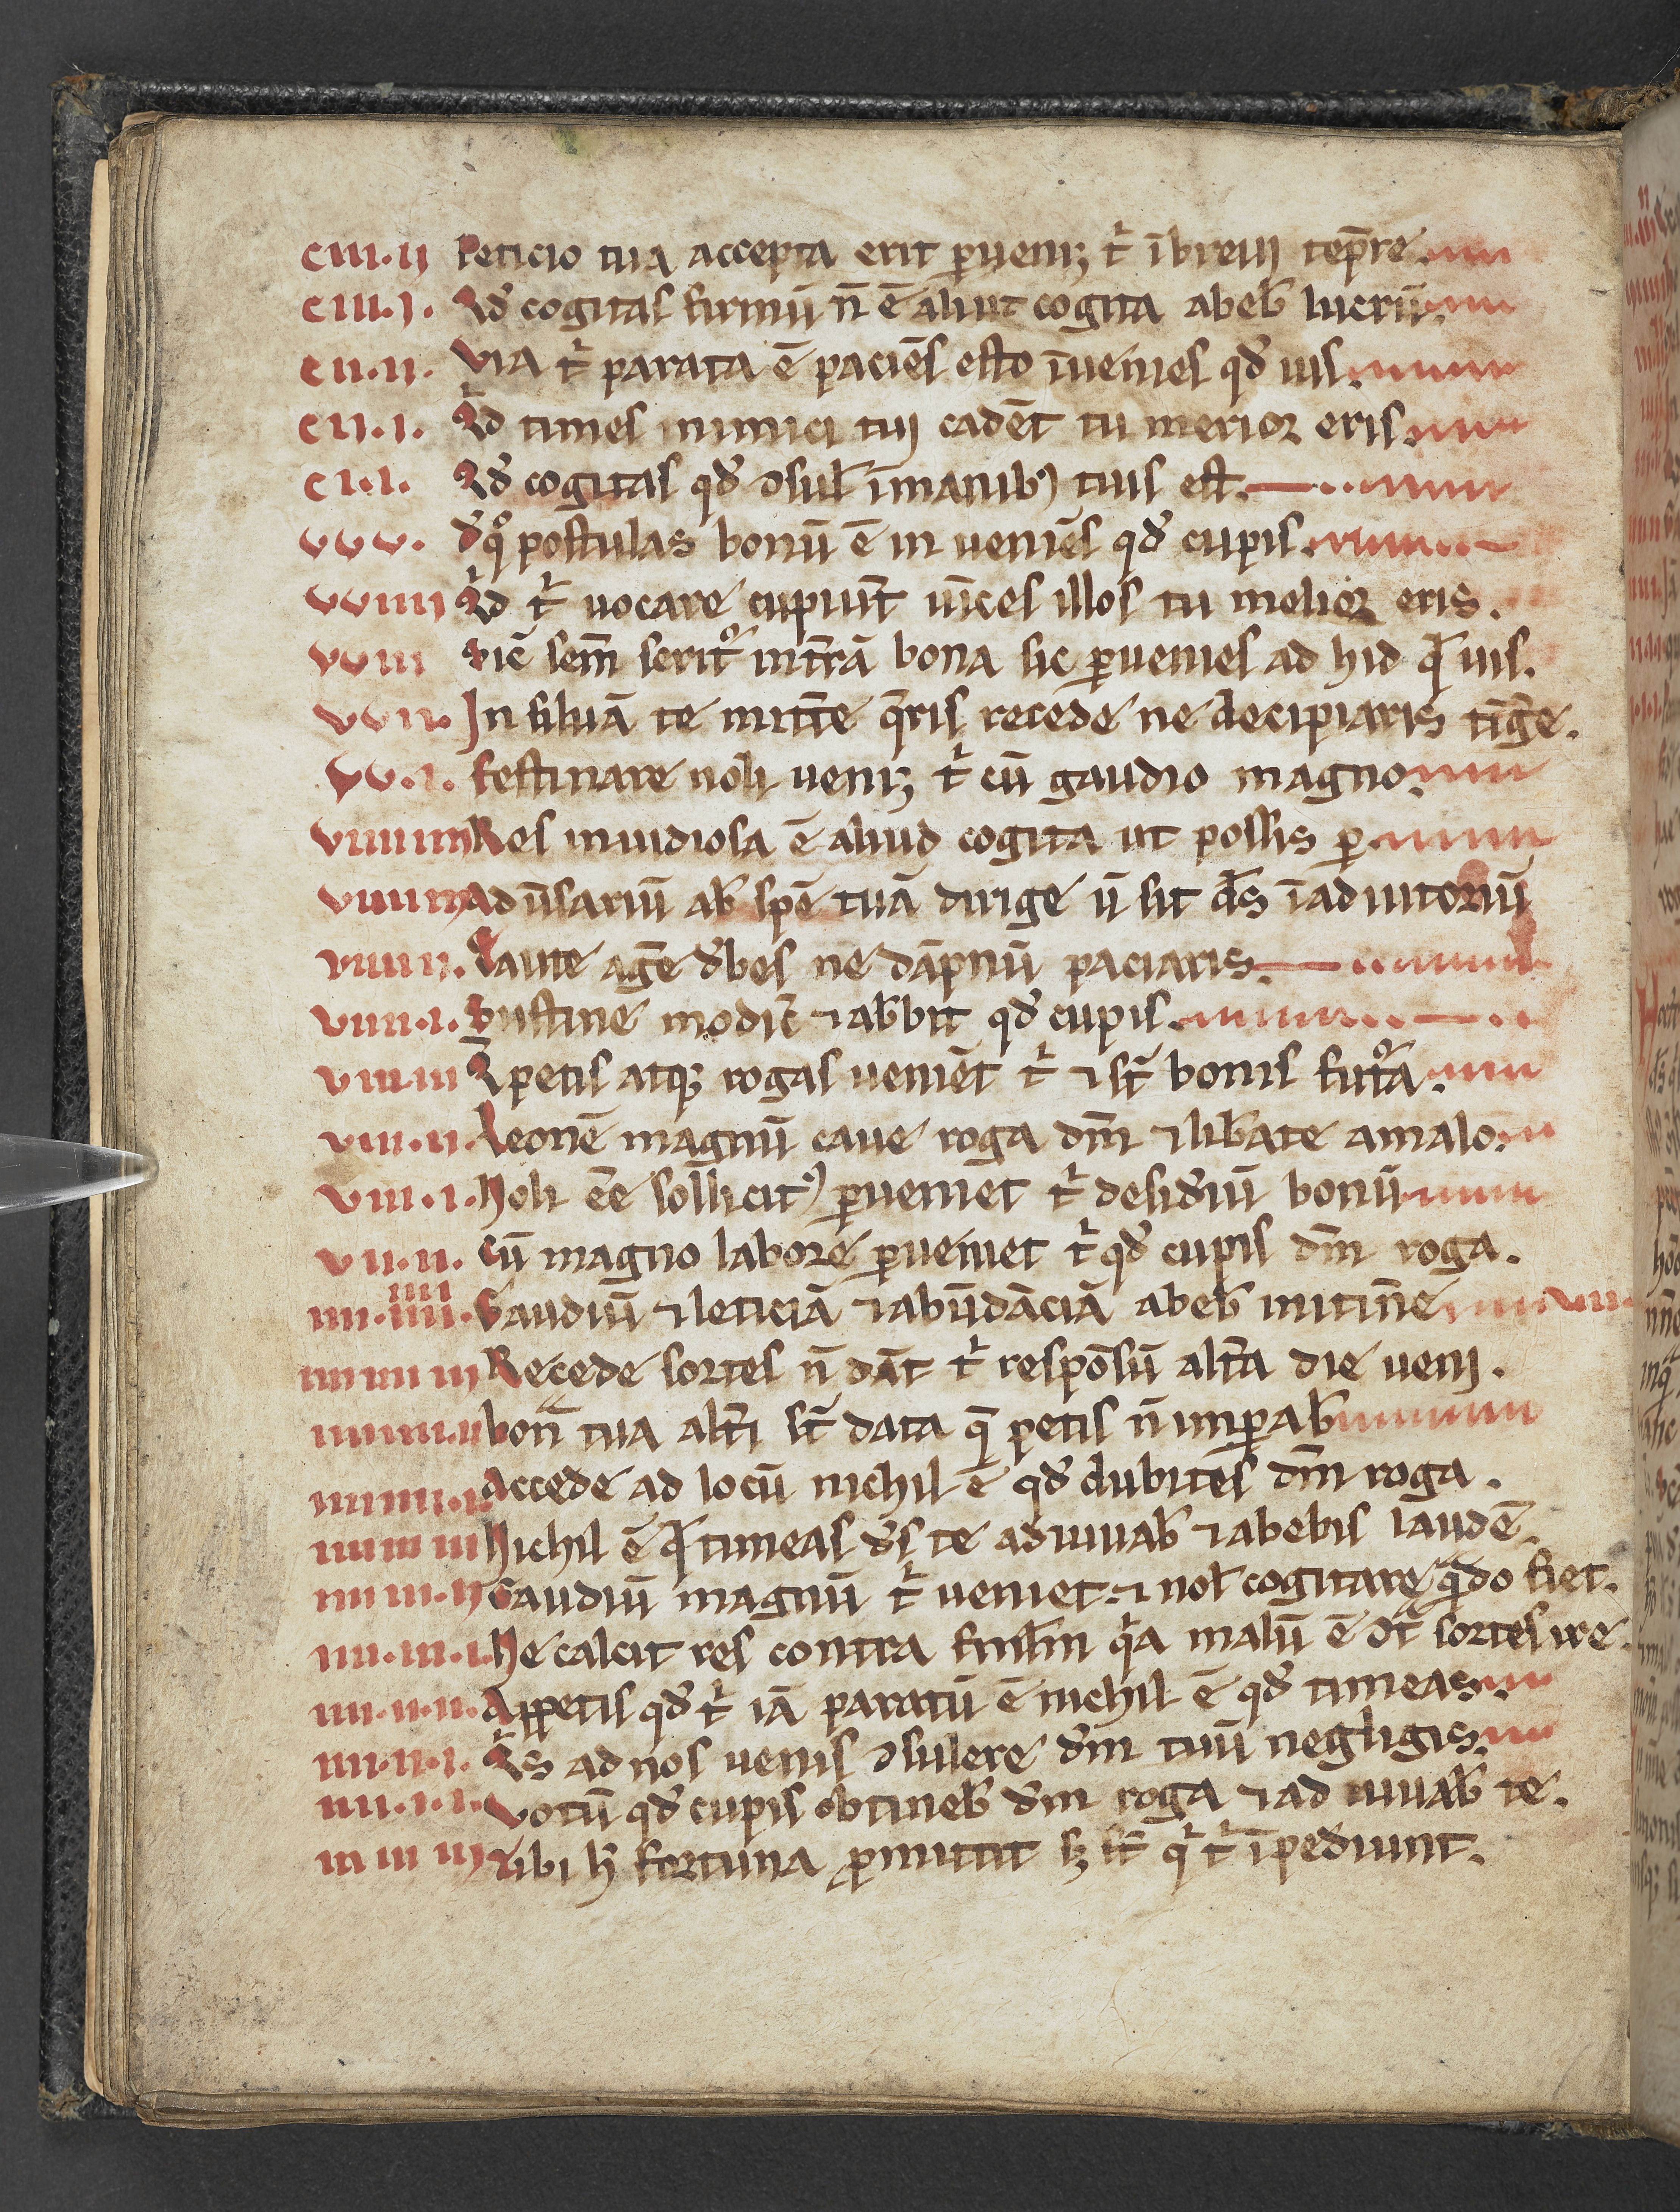 c iii · ii Peticio tua accepta erit ꝑueniꝫ t̾ ībreuj tēpr̄e
c iii · j · Qđ cogitas firmū n̄ ē aliut cogita abeb̄ lucrū
c ii · ii · Via t̾ parata ē paciēs esto īuenies qđ uis
c ii · i · Qid times inimici tuj cadēt tu meriorꝫ eris
c i · i · Qđ cogitas qđ ↄsul̄ īmanib⁹ tuis est
v v v · đ qͦ postulas bonū ē in ueniēs qđ cupis
v v iiii Qid t̾ uocare cupiūt uīces illos tu melior eris .
v v iii Sic̄ sem̄ serit͛ int̄rā bona sic ꝑuenies ad hid q̄ uis.
v v ii · In siluā te mitte q̄ris recede ne decipiaris tīge .
v v · i · Festinare noli ueniꝫ t̾ cū gaudio magno
v iiii iiii Res inuidiosa ē aliud cogita ut possis ꝑ
v iiii iii Adūsariū ab̄ spē tuā dirige ū sit d̄s īadiutoriū
v iiii ii · Caute agē đbes ne dāpnū paciaris
v iiii · i · Sustine modic̄ ⁊ ab̄bit qđ cupis
v iii · iii Q̄ petis atqꝫ rogas ueniēt t̾ ⁊ st̄ bonis fut͛a
v iii · ii · Leonē magnū caue roga dm̄ ⁊ lib̄ate amalo
v iii · i · Noli ēe sollicit⁹ ꝑueniet t̾ desiđiū bonū
v ii · ii · Cū magno labore ꝑueniet t̾ qđ cupis dm̄ roga .
iiii · iiii · iiii Gaudiū ⁊ leticiā ⁊ abūdāciā abeb̄ initin̄e
iiii iiii iii Recede sortes n̄ dāt t̾ respōsū alt̄a die uenj .
iiii iiii · ii bon̄ tua alt̄i st̄ data q̄ petis n̄ imꝑab̄
iiii iiii · i · Accede ad locū nichil ē qđ dubites dm̄ roga .
iiii iii iii Nichil ē q̄ timeas đs te adiuuab̄ ⁊ abebis laudē .
iiii iii · ii Gaudiū magnū t̾ ueniet · ⁊ nol̄ cogitare q̄do fiet .
iiii · iii · i · Ne calcit res contra stim̄l q̾a malū ē ↄt̄ sortes ire .
iiii · ii · ii · Appetis qđ t̾ iā paratū ē nichil ē qđ timeas
iiii · ii · i · Qis ad nos uenis ↄsulere đm tuū negligis
iiii · i · i · Votū qđ cupis obtineb̄ đm roga ⁊ ad iuuab̄ te .
iii iii iij Tibi h̄ fortuna ꝓmittit sꝫ st̄ q̾ t̾ īpediunt .